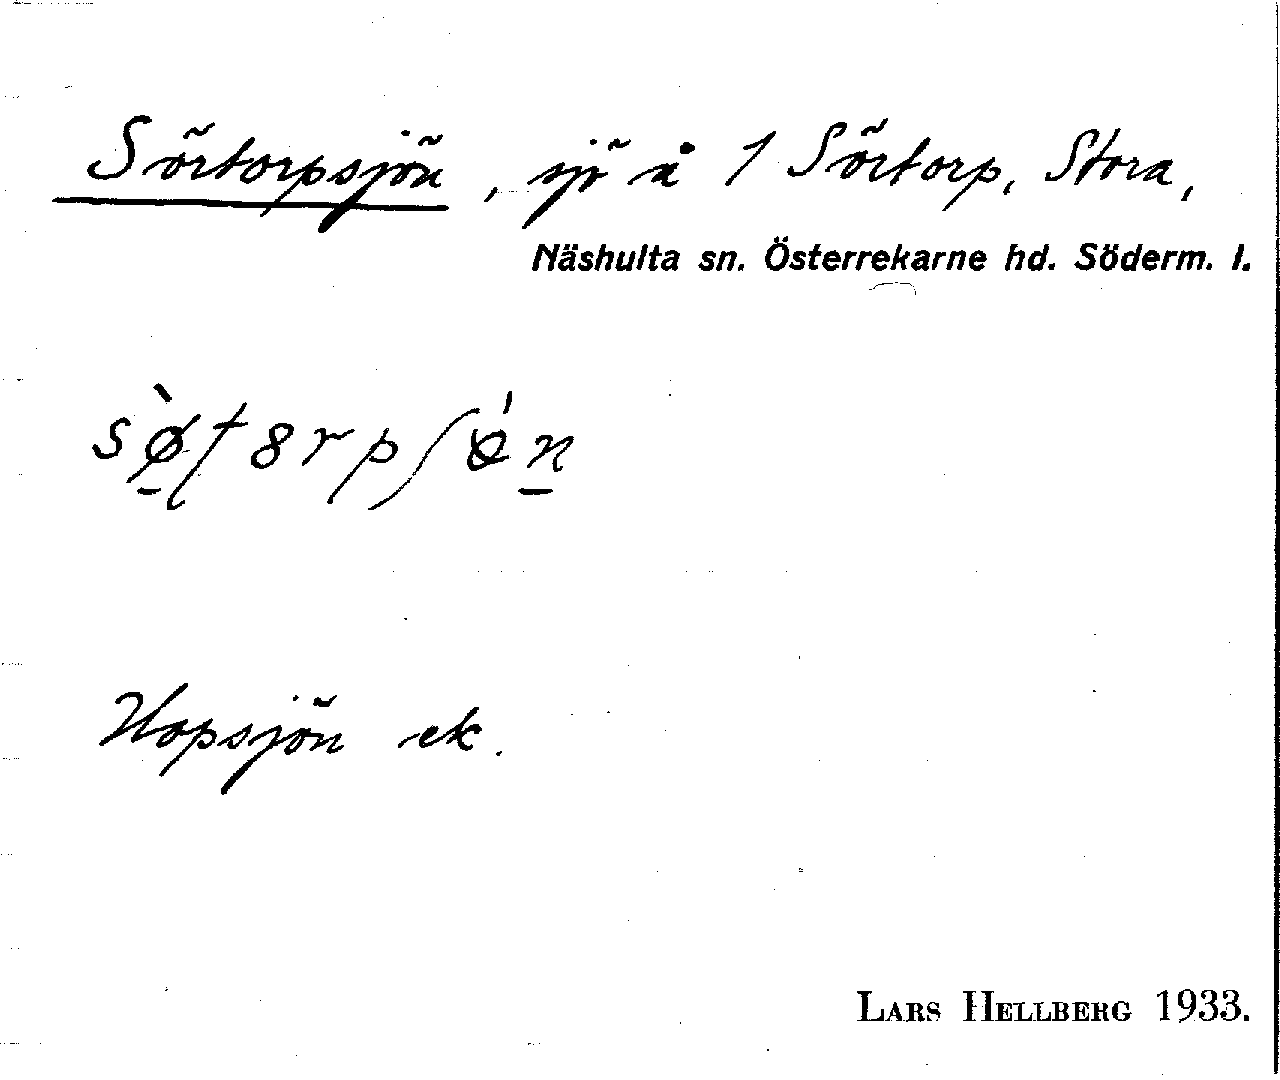 Sörtorpsjön, sjö å 1 Sörtorp, Stora,
Näshulta sn. Österrekarne hd. Söderm. l.
Hopsjön ek.
LARS HELLBERG 1933.